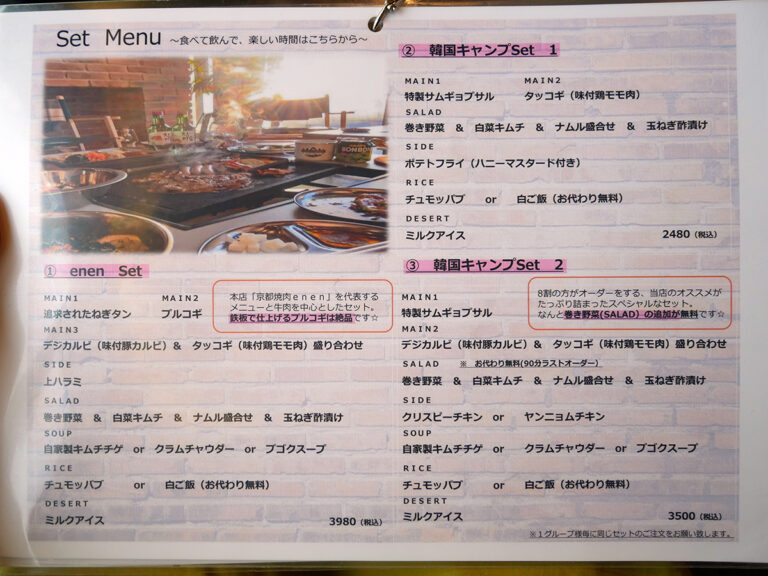 Set Menu ～食べて飲んで、楽しい時間はこちらから～
① enen Set
本店「京都焼肉ｅｎｅｎ」を代表する
メニューと牛肉を中心としたセット。
鉄板で仕上げるプルコギは絶品です☆
MAIN1 MAIN2
追求されたねぎタン プルコギ
MAIN3
デジカルビ（味付豚カルビ）& タッコギ（味付鶏モモ肉）盛り合わせ
SIDE
上ハラミ
SALAD
巻き野菜 & 白菜キムチ & ナムル盛合せ & 玉ねぎ酢漬け
SOUP
自家製キムチチゲ or クラムチャウダー or プゴクスープ
RICE
チュモッパブ or 白ご飯（お代わり無料）
DESERT
ミルクアイス 3980（税込）
② 韓国キャンプSet 1
MAIN1 MAIN2
特製サムギョプサル タッコギ（味付鶏モモ肉）
SALAD
巻き野菜 & 白菜キムチ & ナムル盛合せ & 玉ねぎ酢漬け
SIDE
ポテトフライ（ハニーマスタード付き）
RICE
チュモッパブ or 白ご飯（お代わり無料）
DESERT
ミルクアイス 2480（税込）
③ 韓国キャンプSet 2
8割の方がオーダーをする、当店のオススメが
たっぷり詰まったスペシャルなセット。
なんと巻き野菜(SALAD）の追加が無料です☆
MAIN1
特製サムギョプサル
MAIN2
デジカルビ（味付豚カルビ）& タッコギ（味付鶏モモ肉）盛り合わせ
SALAD ※ お代わり無料(90分ラストオーダー）
巻き野菜 & 白菜キムチ & ナムル盛合せ & 玉ねぎ酢漬け
SIDE
クリスピーチキン or ヤンニョムチキン
SOUP
自家製キムチチゲ or クラムチャウダー or プゴクスープ
RICE
チュモッパブ or 白ご飯（お代わり無料）
DESERT
ミルクアイス 3500（税込）
※１グループ様毎に同じセットのご注文をお願い致します。